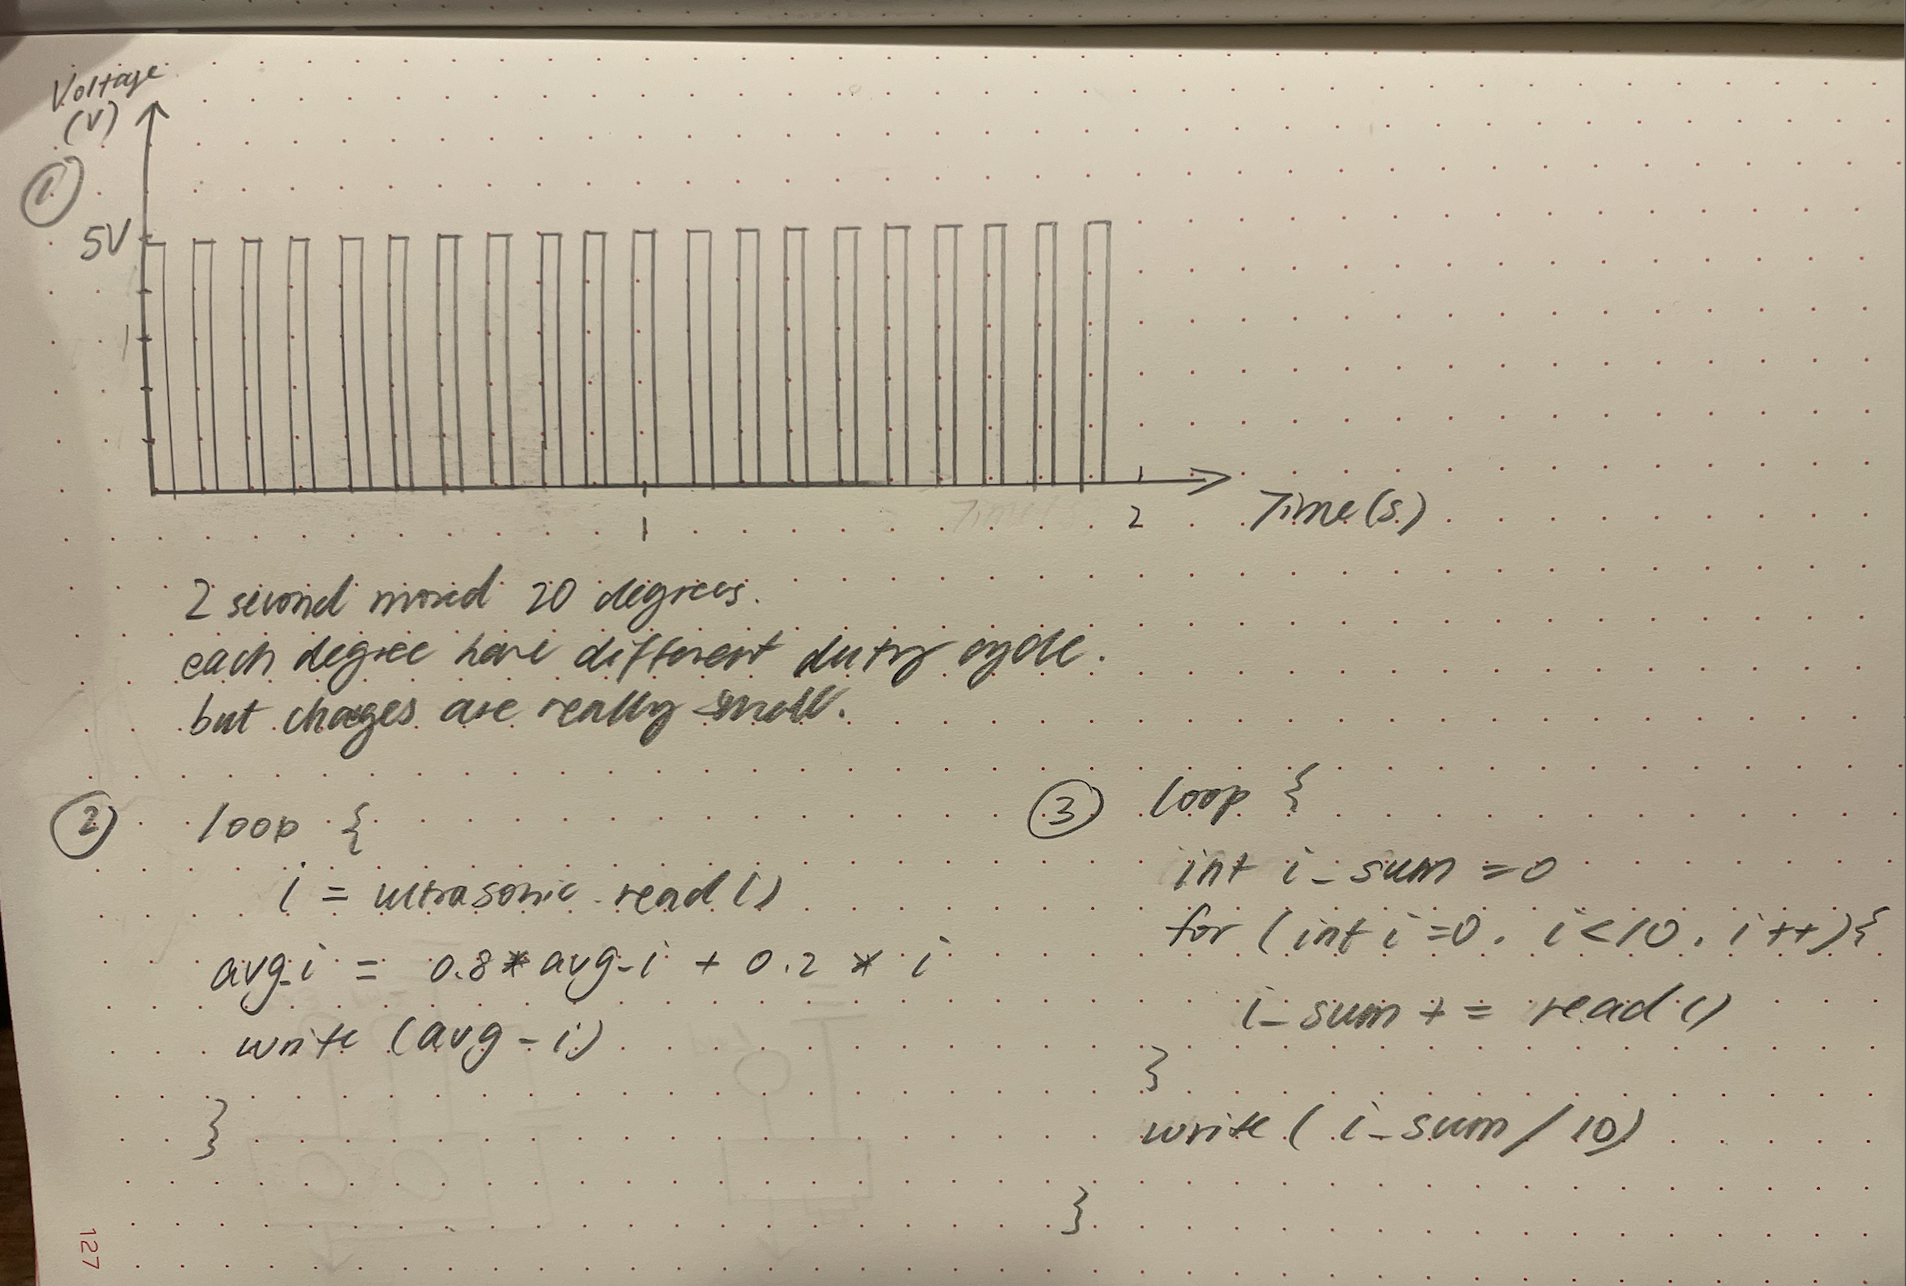 Voltage
(V)
1.
5V
1
1
2
Time(s)
2 second moved 20 degrees.
each degree have different duty cycle.
but chages are really small.
2
loop {
i = ultrasonic.read()
avg_i = 0.8*avg_i + 0.2 * i
write (avg_i)
}
3
loop {
int i_sum =0
for (int i=0, i<10, i++){
i_sum += read()
}
write ( i_sum / 10)
}
127